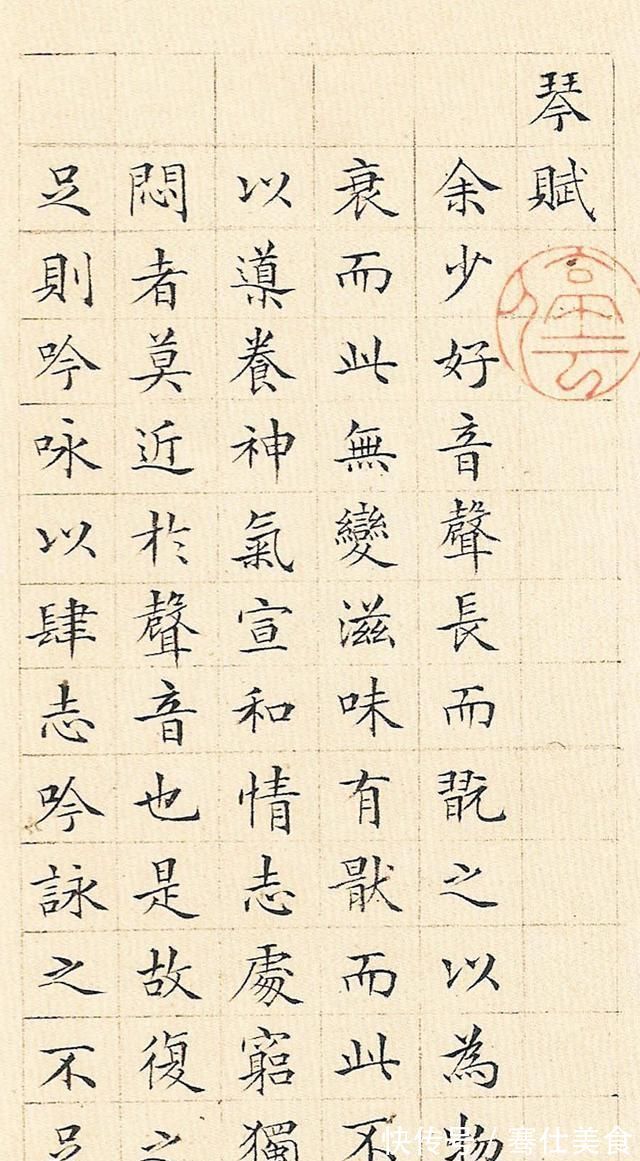 琴賦
余少好音聲長而翫之以為物
衰而此無變滋味有猒而此不
以導養神氣宣和情志處窮獨
悶者莫近於聲音也是故復之
足則吟咏以肆志吟詠之不足
快传号 / 骞仕美食